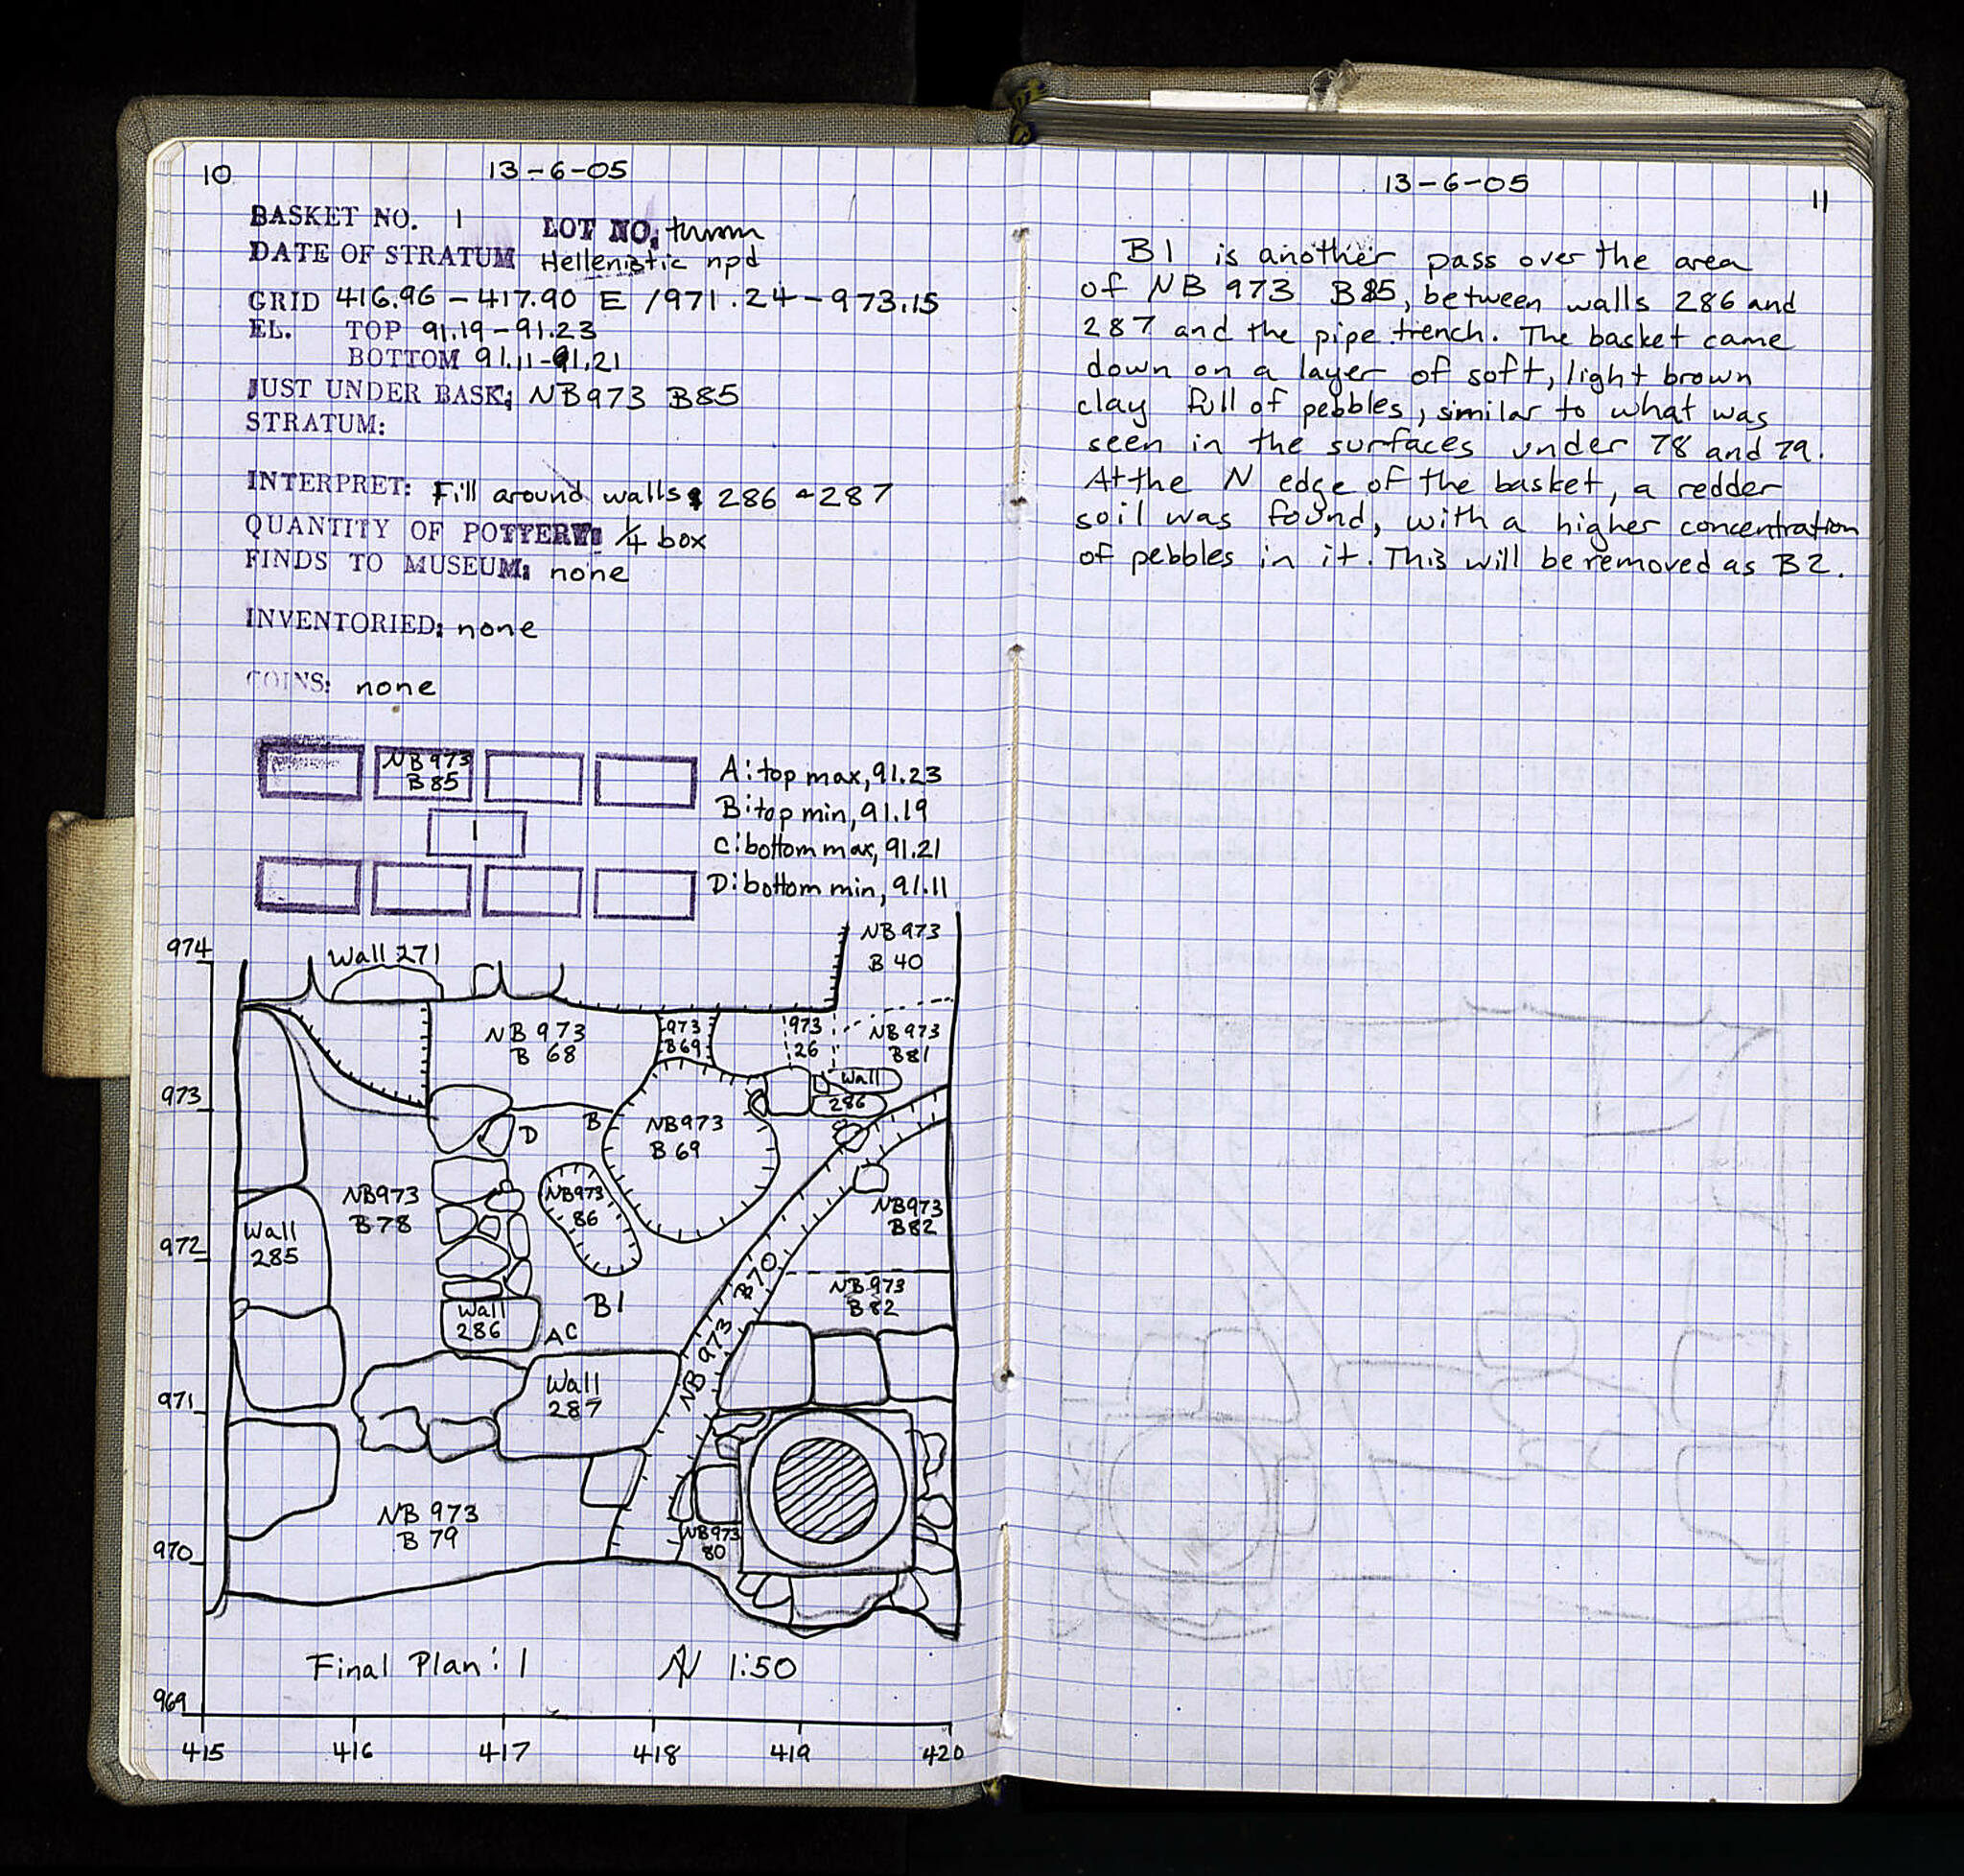 10
13-6-05
BASKET NO. 1 LOT NO:
DATE OF STRATUM Hellenistic npd
GRID 416.96 - 417.90 E / 971.24 - 973.15
EL. TOP 91.19-91.23
BOTTOM 91.11-91.21
JUST UNDER BASK: NB973 B85
STRATUM:
INTERPRET: Fill around walls 286 + 287
QUANTITY OF POTTERY: 1/4 box
FINDS TO MUSEUM: none
INVENTORIED: none
COINS: none
NB 973
B 85
1
A: top max, 91.23
B: top min, 91.19
C: bottom max, 91.21
D: bottom min, 91.11
974
Wall 271
NB 973
B 40
NB 973
B 68
973
B69
973
26
NB 973
B81
973
Wall
286
D
B
NB973
B 69
NB973
B 78
NB973
86
NB973
B82
Wall
285
972
NB 973 B70
NB 973
B 82
B1
Wall
286
A C
Wall
287
971
NB 973
B 79
NB973
80
970
Final Plan: 1 N 1:50
969
415 416 417 418 419 420
13-6-05
11
B1 is another pass over the area
of NB 973 B85, between walls 286 and
287 and the pipe trench. The basket came
down on a layer of soft, light brown
clay full of pebbles, similar to what was
seen in the surfaces under 78 and 79.
At the N edge of the basket, a redder
soil was found, with a higher concentration
of pebbles in it. This will be removed as B2.